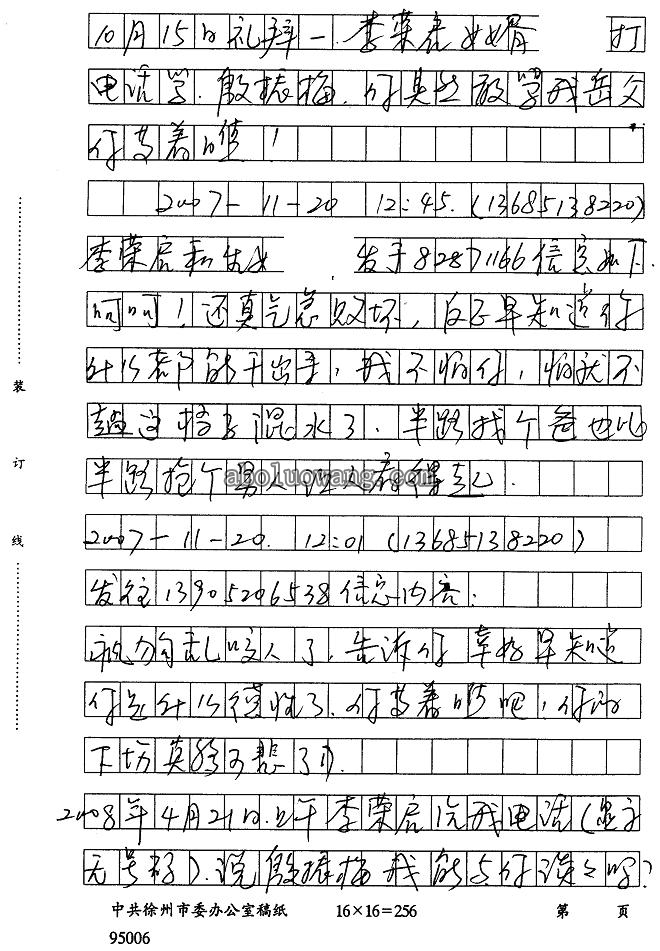 10月15日礼拜一.李荣启女婿 打
电话骂.殷振梅.你真敢骂我岳父
你等着瞧!
2007-11-20 12:45.(13685138220)
李荣启 女 发于82871166信息如下.
呵呵!还真气急败坏,反正早知道你
什么都能干出手,我不怕你,怕就不
趟这档子混水了.半路找个爸也比
半路抢个男人 得起.
aboluowang.com
2007-11-20. 12:01 (13685138220)
发往13905206538信息内容:
疯狗乱咬人了,告诉你 幸好早知道
你是什么德性了.你等着瞧吧!你的
下场莫经可悲了).
2008年4月21日上午李荣启给我电话(显示
无号码).说殷振梅我能与你谈谈吗?
装
订
线
中共徐州市委办公室稿纸 16×16=256 第 页
95006